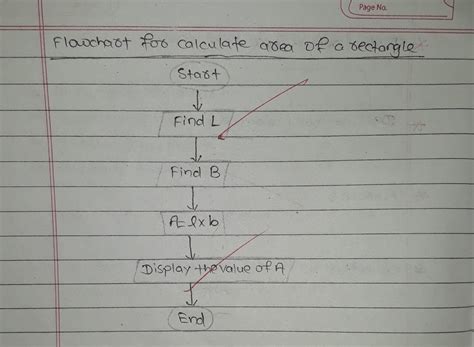 Page No.
Flowchart for calculate area of a rectangle
Start
Find L
Find B
A=l×b
Display the value of A
End